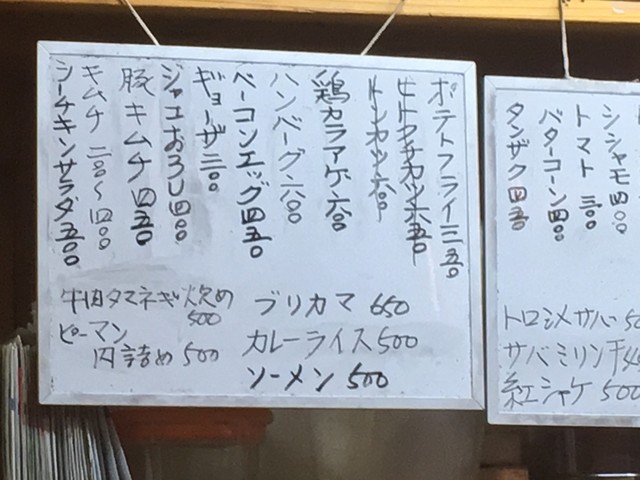 ポテトフライ 三五〇
トンカツ 六〇〇
鶏カラアゲ 六〇〇
ハンバーグ 六〇〇
ベーコンエッグ 四五〇
ギョーザ 三〇〇
ジャコおろし 四〇〇
豚キムチ 四五〇
キムチ 二〇〇〜四〇〇
シーチキンサラダ 五〇〇
牛肉タマネギ炒め
500
ピーマン
肉詰め 500
ブリカマ 650
カレーライス 500
ソーメン 500
シシャモ 四〇〇
トマト 三〇〇
バターコーン 四〇〇
タンザク 四五〇
トロシメサバ 5
サバミリン干
紅シャケ 500